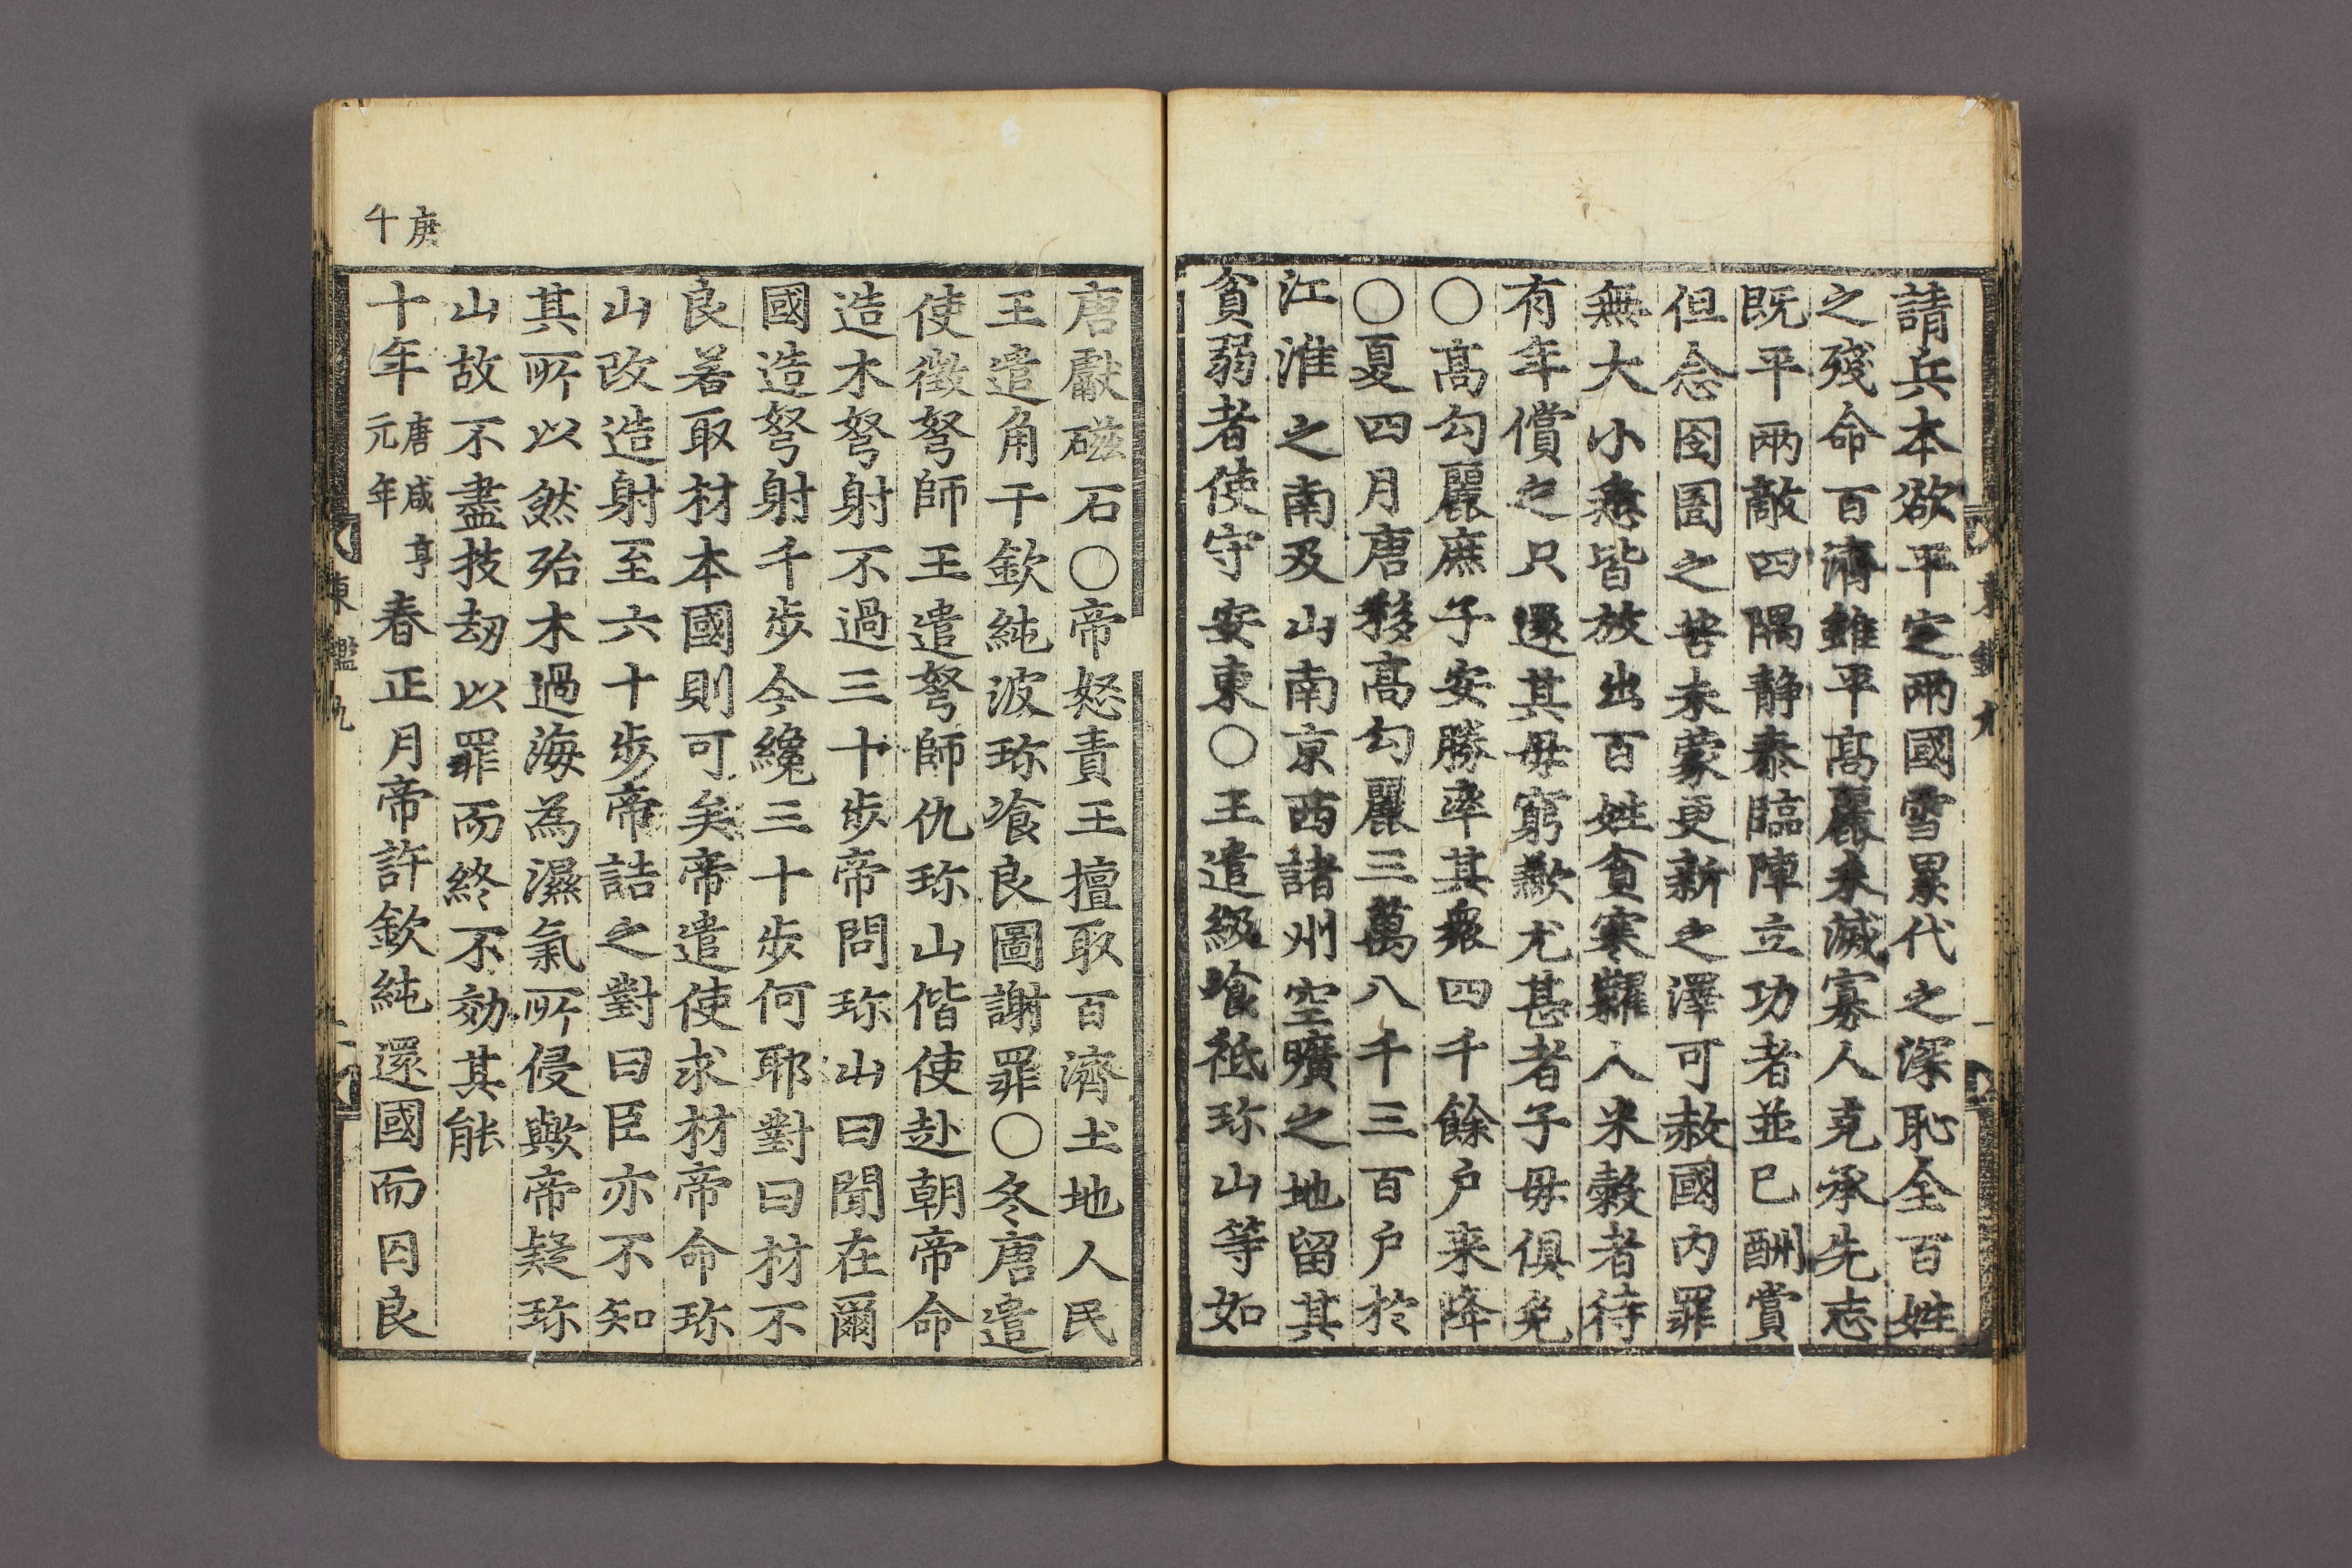 請兵本欲平定兩國雪累代之深恥全百姓
之殘命百濟雖平高麗未滅寡人克承先志
既平兩敵四隅静泰臨陣立功者並已酬賞
但念囹圄之苦未蒙更新之澤可赦國內罪
無大小悉皆放出百姓貧寒糶入米穀者待
有年償之只還其母窮歉尤甚者子母俱免
○高勾麗庶子安勝率其衆四千餘户来降
○夏四月唐移高勾麗三萬八千三百户於
江淮之南及山南京西諸州空曠之地留其
貧弱者使守安東○王遣級飡祗珎山等如
唐獻磁石○帝怒責王擅取百濟土地人民
王遣角干欽純波珎飡良圖謝罪○冬唐遣
使徵弩師王遣弩師仇珎山偕使赴朝帝命
造木弩射不過三十步帝問珎山曰聞在爾
國造弩射千步今纔三十步何耶對曰材不
良若取材本國則可矣帝遣使求材帝命珎
山改造射至六十步帝詰之對曰臣亦不知
其所以然殆木過海為濕氣所侵歟帝疑珎
山故不盡技劫以罪而終不効其能
庚午
十年唐咸亨元年春正月帝許欽純還國而囚良
東鑑九